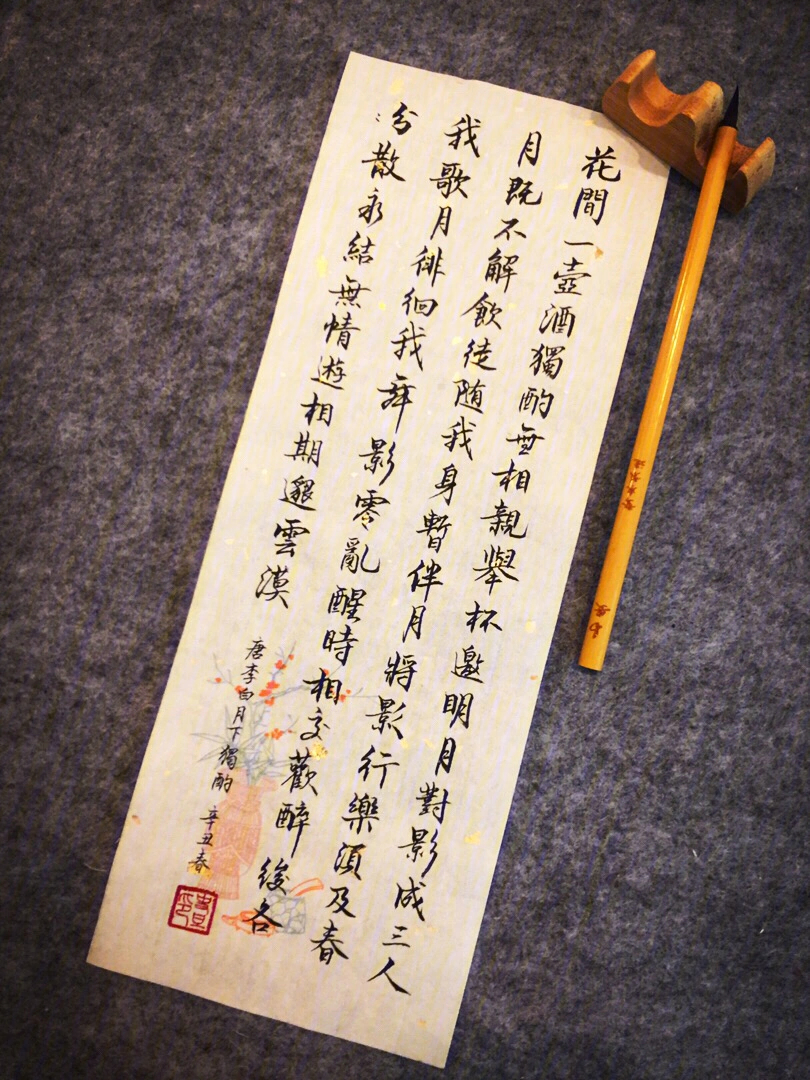 花間一壺酒獨酌無相親舉杯邀明月對影成三人
月既不解飲徒随我身暫伴月將影行樂須及春
我歌月徘徊我舞影零亂醒時相交歡醉後各
分散永結無情遊相期邈雲漢
唐李白月下獨酌 辛丑春